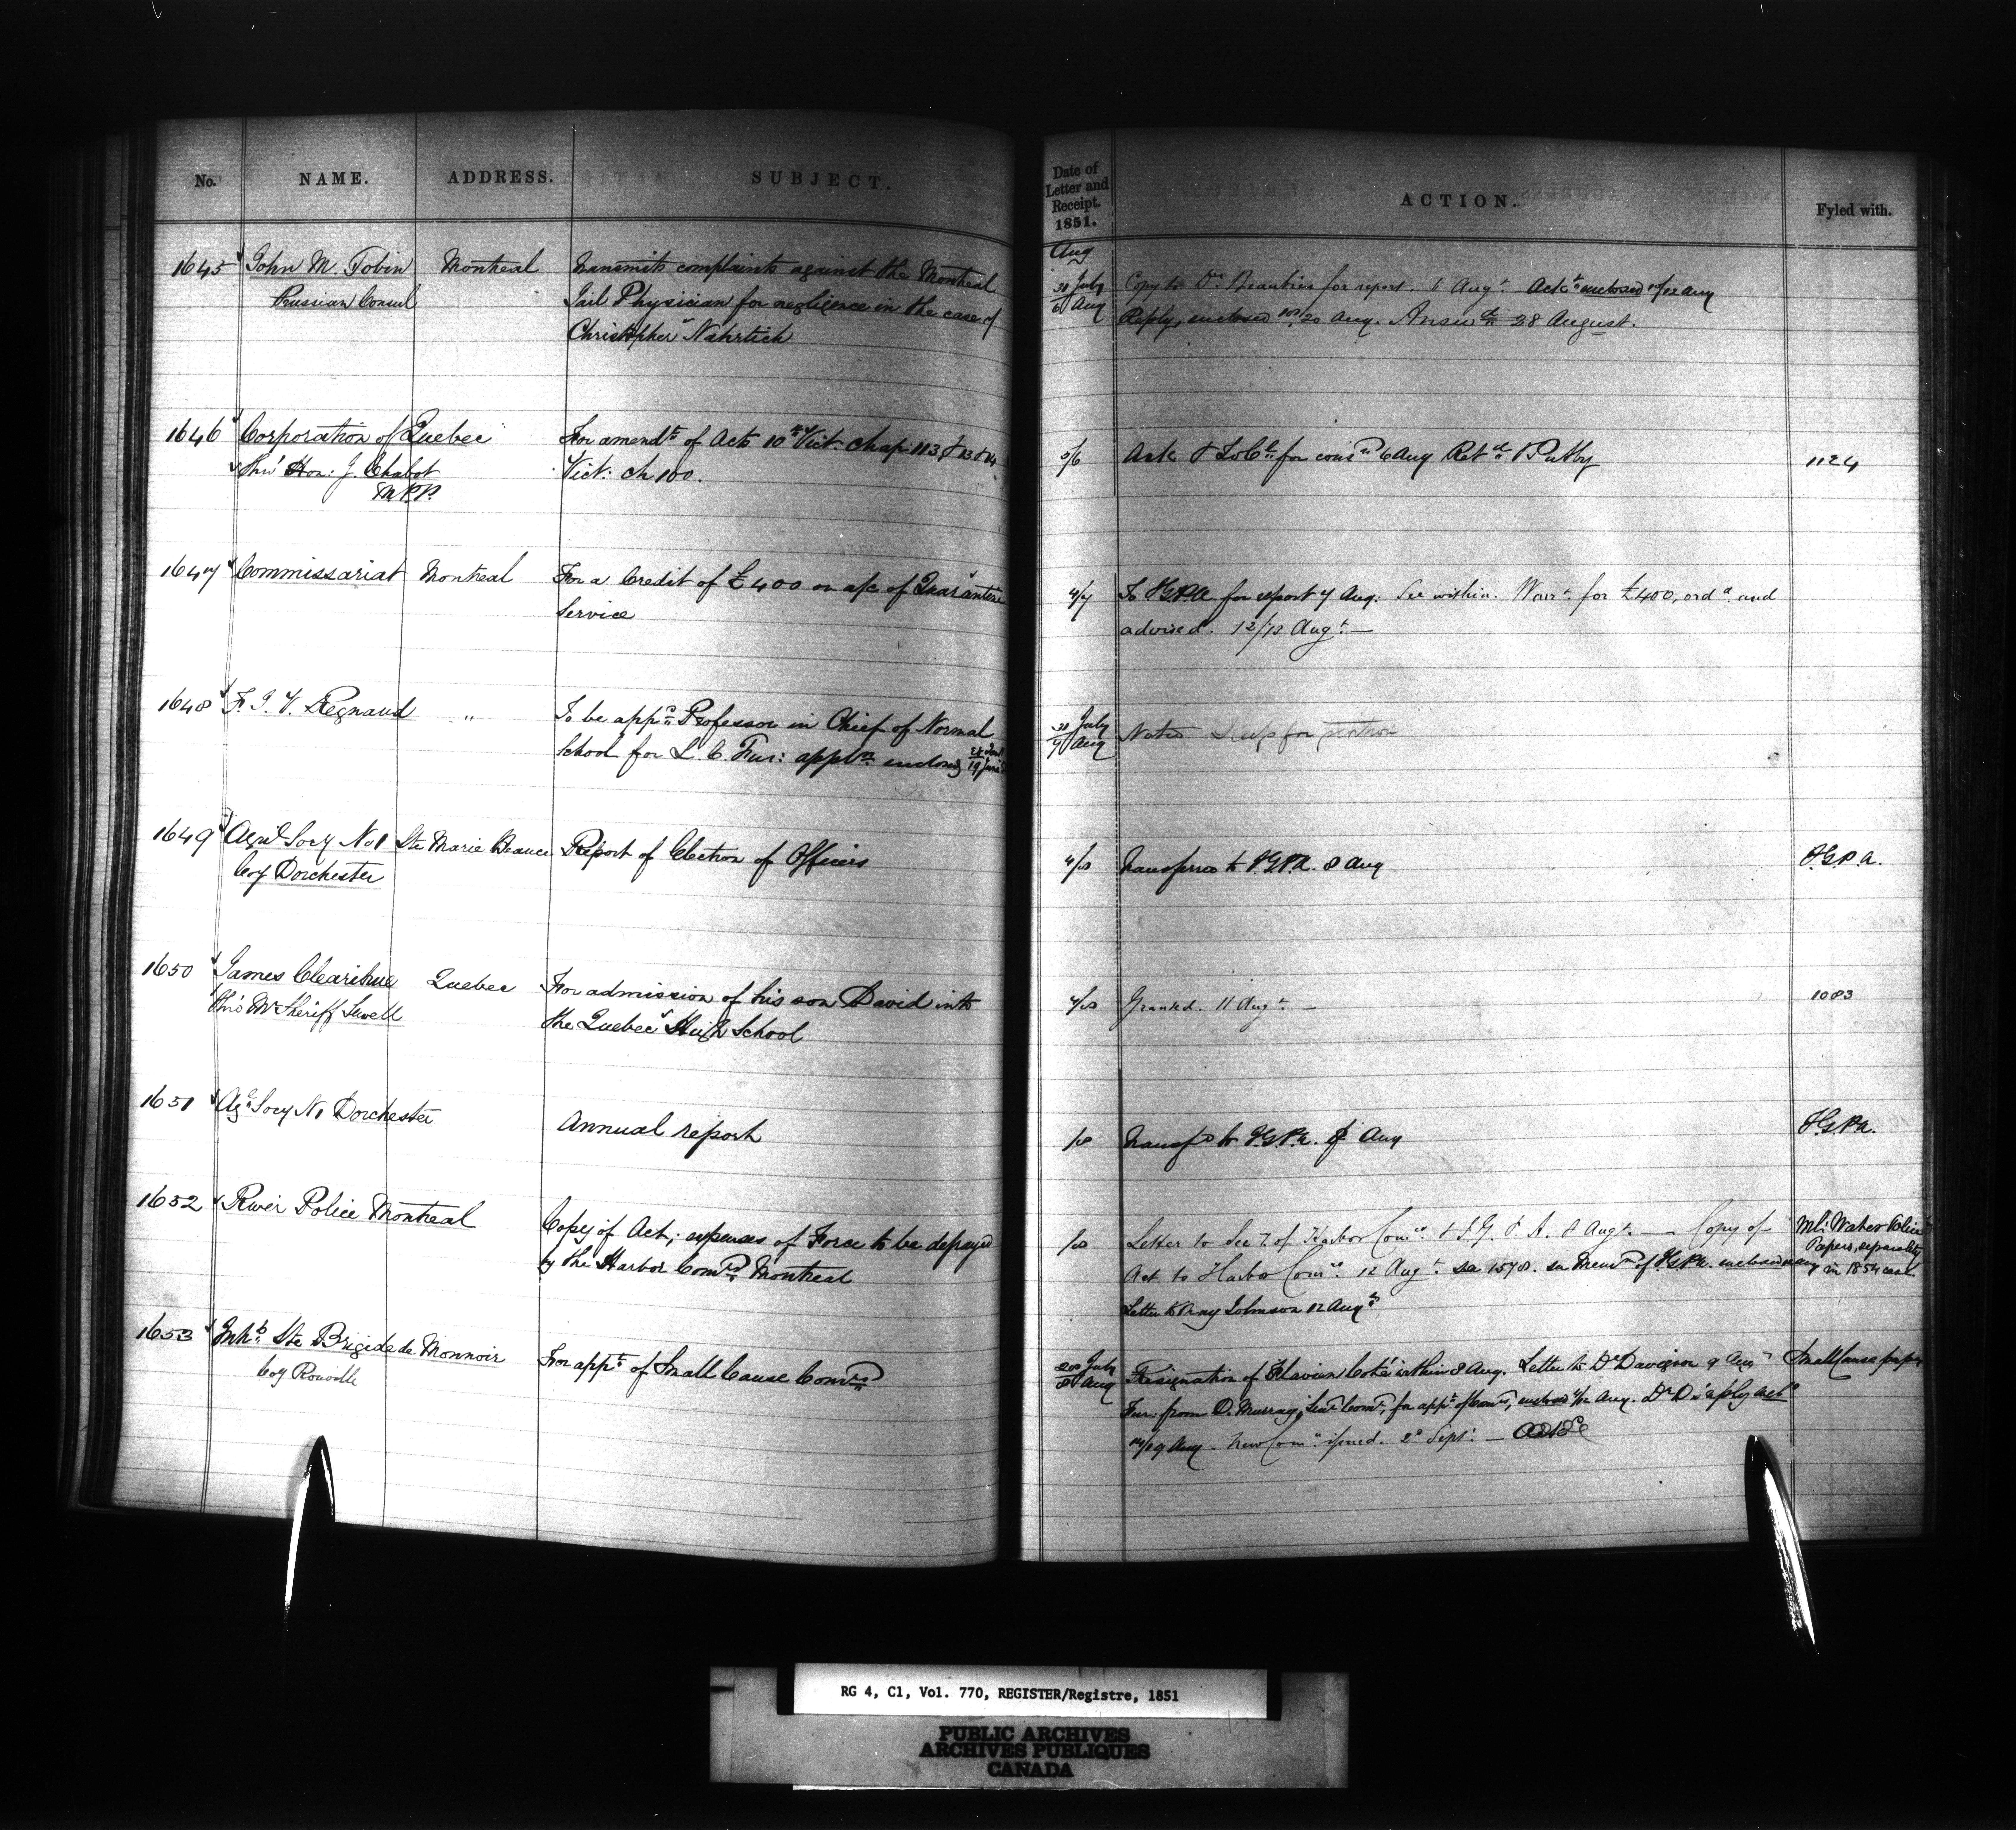 No. NAME. ADDRESS. SUBJECT.
Date of Letter and Receipt. 1851. ACTION. Fyled with.
Aug
1645 John M. Tobin Montreal Transmits complaints against the Montreal
Russian Consul Jail Physician for negligence in the case of
Christopher Nahrtich
30 July Copy to Dr. Beaubien for report. 6 Augt. enclosed 12 Aug
6 Aug Reply, enclosed 20 Aug. Answd. 28 August.
1646 Corporation of Quebec For amendt. of Acts 10th Vict: Chap: 113 & 13 & 14
thro' Hon: J. Chabot Vict: Ch 100.
M.P.P.
6 Aug Retd. 1124
1647 Commissariat Montreal For a Credit of £400 on a/c of Quarantine
Service
4/7 To I.G.P.A. for report 7 Aug: See within. Warrt. for £400, ordd. and
advised. 12/13 Augt. —
1648 F. J. V. Regnaud " To be appd. Professor in Chief of Normal
School for L. C. Fur: appln. enclosed
30 July
7 Aug Noted Keep for
1649 Agril Socy No 1 Ste Marie Beauce Report of Election of Officers
Coy Dorchester
4/8 Transferred to I.G.P.A. 8 Aug I.G.P.A.
1650 James Clearihue Quebec For admission of his son David into
thro' Mr Sheriff Sewell the Quebec High School
7/8 Granted. 11 Augt. — 1083
1651 Agl. Socy No 1 Dorchester Annual report
/8 Transfd to I.G.P.A. 8 Aug I.G.P.A.
1652 River Police Montreal Copy of Act; expenses of Force to be defrayed
by the Harbor Comrs. Montreal
/8 Letter to Secy. of Harbor Comrs. & I. G. P. A. 8 Augt. — Copy of
Act to Harbor Comrs. 12 Augt. See 1578. enclosed
Letter to Johnson 12 Augt.
Water Police
Papers, separately
in 1854
1653 Inhbts. Ste Brigide de Monnoir For appt. of Small Cause Comrs.
Coy Rouville
28 July Resignation of Flavien Coté within 8 Aug. Letter to Dr Davignon 9 Aug Small Cause papers
8 Aug Fur: from D. Murray, for appt. of Comrs, enclosed 12 Aug. Dr D's reply
19 Aug. New Comn. issued. 2d Sept. —
RG 4, C1, Vol. 770, REGISTER/Registre, 1851
PUBLIC ARCHIVES
ARCHIVES PUBLIQUES
CANADA